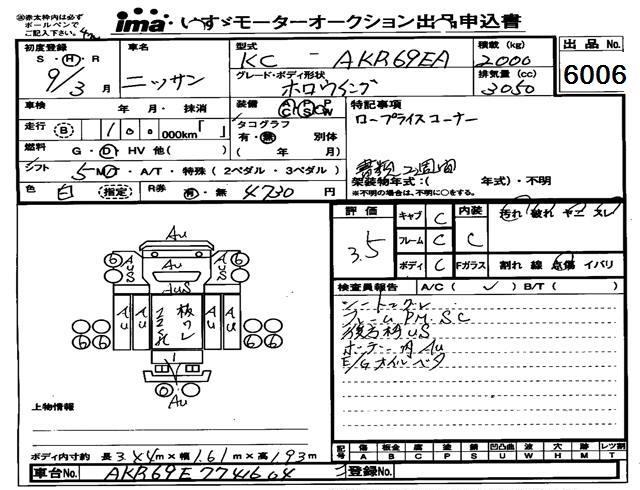 ※赤太枠内は必ず
ボールペンで
ご記入下さい。
ima いすゞモーターオークション出品申込書
初度登録 車名 型式 積載(kg) 出品No.
S・H・R ニッサン KC - AKR69EA 2000
9/3月 グレード・ボディ形状 排気量(cc) 6006
ホロウイング 3050
車検 年 月・抹消 装備 AC PS PW 特記事項
走行 B 000km「 」 タコグラフ ロープライスコーナー
有・無 別体
燃料 G・D・HV 他( ) ( 年 月)
シフト 5 M/T・A/T・特殊(2ペダル・3ペダル) 書類二週間
架装物年式:( 年式)・不明
色 白 (指定) R券 有・無 4730 円 ※不明の場合は、不明に○をする。
評価 3.5
キャブ C 内装 C 汚れ 破れ ヤニ スレ
フレーム C
ボディ C Fガラス 割れ 線 点傷 イバリ
検査員報告 A/C( ✓ ) B/T( )
シートコゲ
フレームPM.SC
後右柄US
ボデー内AU
E/Gオイルベタ
Au
AuS
Au
上物情報
ボディ内寸約 長3.44m×幅1.61m×高1.93m
記号 傷 板金 腐 塗 錆 凹凸曲 波 穴 跡 レツ割
A B C P S U W H M T
車台No. AKR69E7741604 登録No.